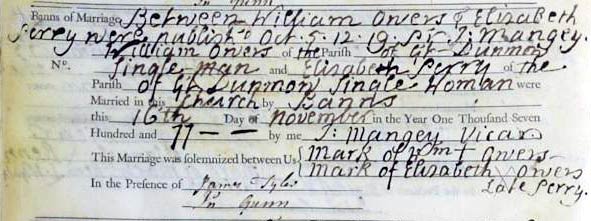 Banns of Marriage Between William Owers & Elizabeth
Perry were publish'd Oct. 5. 12. 19. Pr J: Mangey.
William Owers of the Parish of Gt Dunmow
No. Single-man and Elizabeth Perry of the
Parish of Gt Dunmow Single Woman were
Married in this Church by Banns
this 16th Day of November in the Year One Thousand Seven
Hundred and 77 — — by me J: Mangey Vicar
This Marriage was solemnized between Us { mark of Wm + Owers
mark of Elizabeth Owers
Late Perry.
In the Presence of James Syles
Jn Gunn